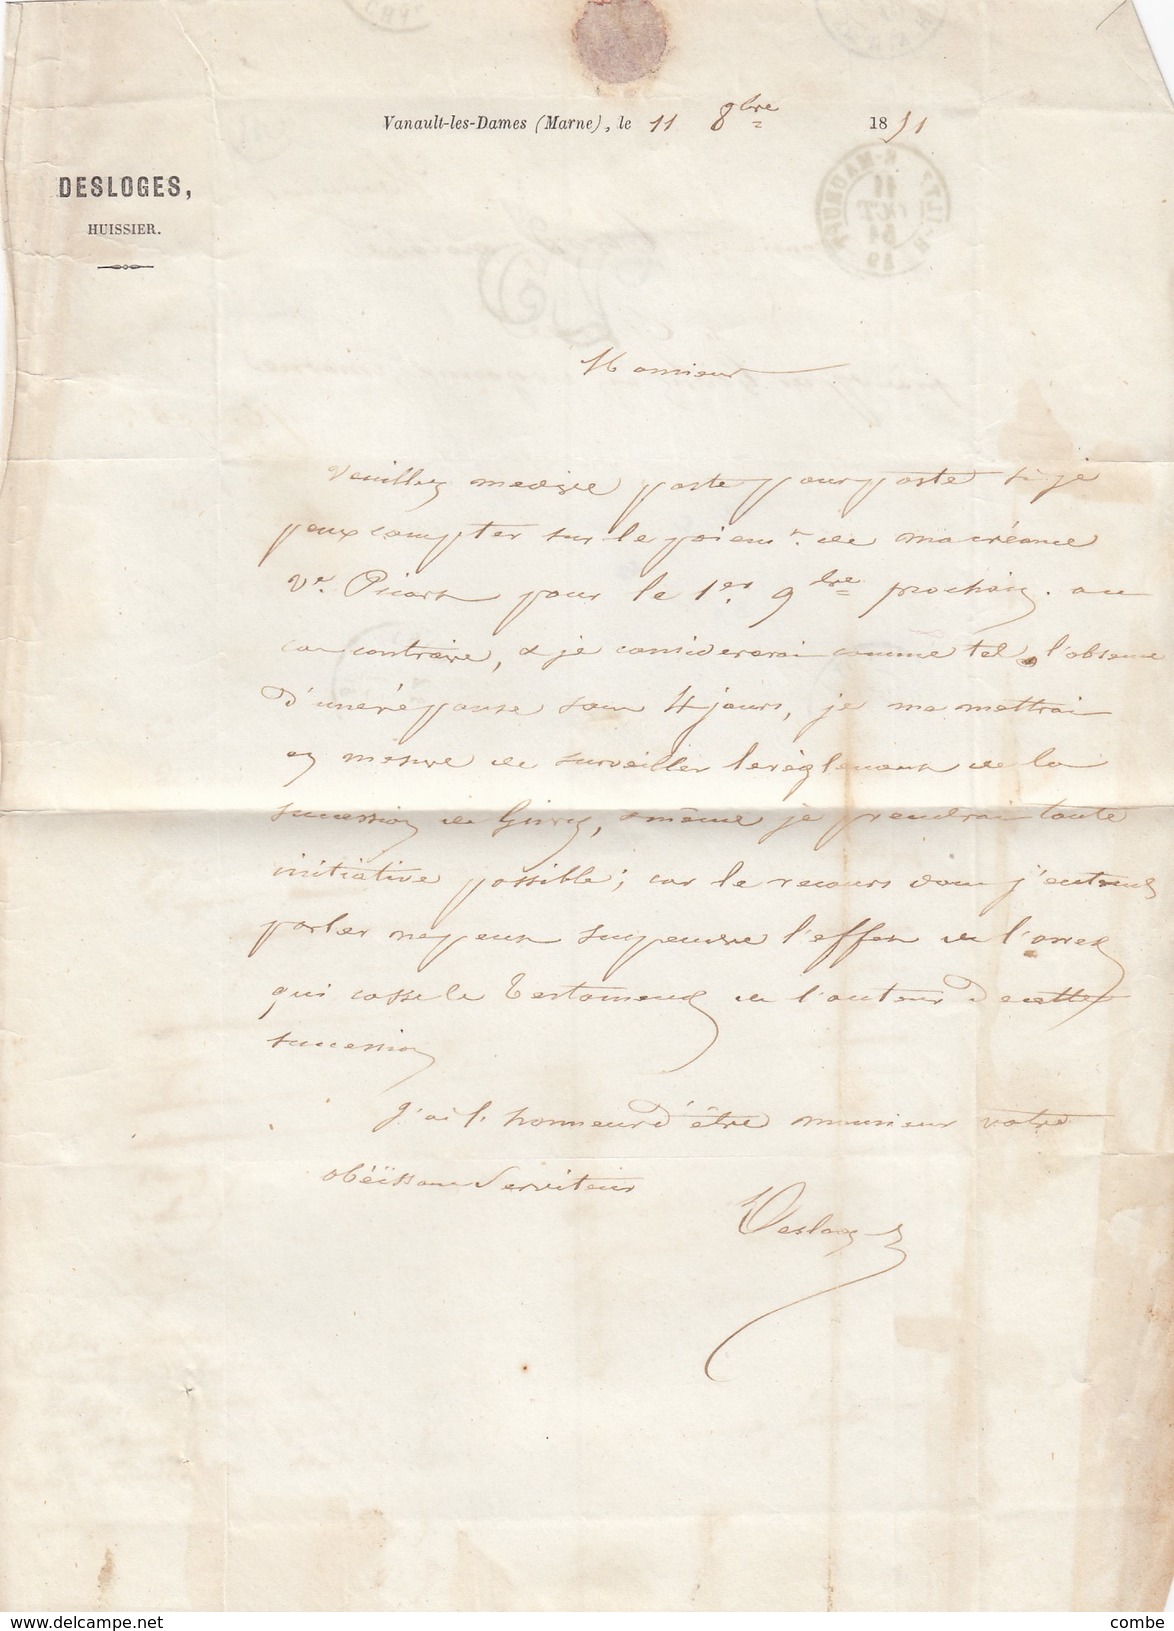 Vanault-les-Dames (Marne), le 11 8bre 1851
DESLOGES,
HUISSIER.
Monsieur
Veuillez me dire poste pour poste si je
peux compter sur le paiemt. de ma créance
Ve. Picart pour le 1er. 9bre prochain. au
cas contraire, & je considererai comme tel, l'absence
d'une réponse sous 4 jours, je me mettrai
en mesure de surveiller le règlement de la
succession de Givry, & même je prendrai toute
initiative possible; car le recours dont j'entends
parler ne peut suspendre l'effet de l'arret
qui casse le testament de l'auteur de cette
succession
J'ai l'honneur d'être monsieur votre
obéissant serviteur
Desloges
delcampe.net
combe